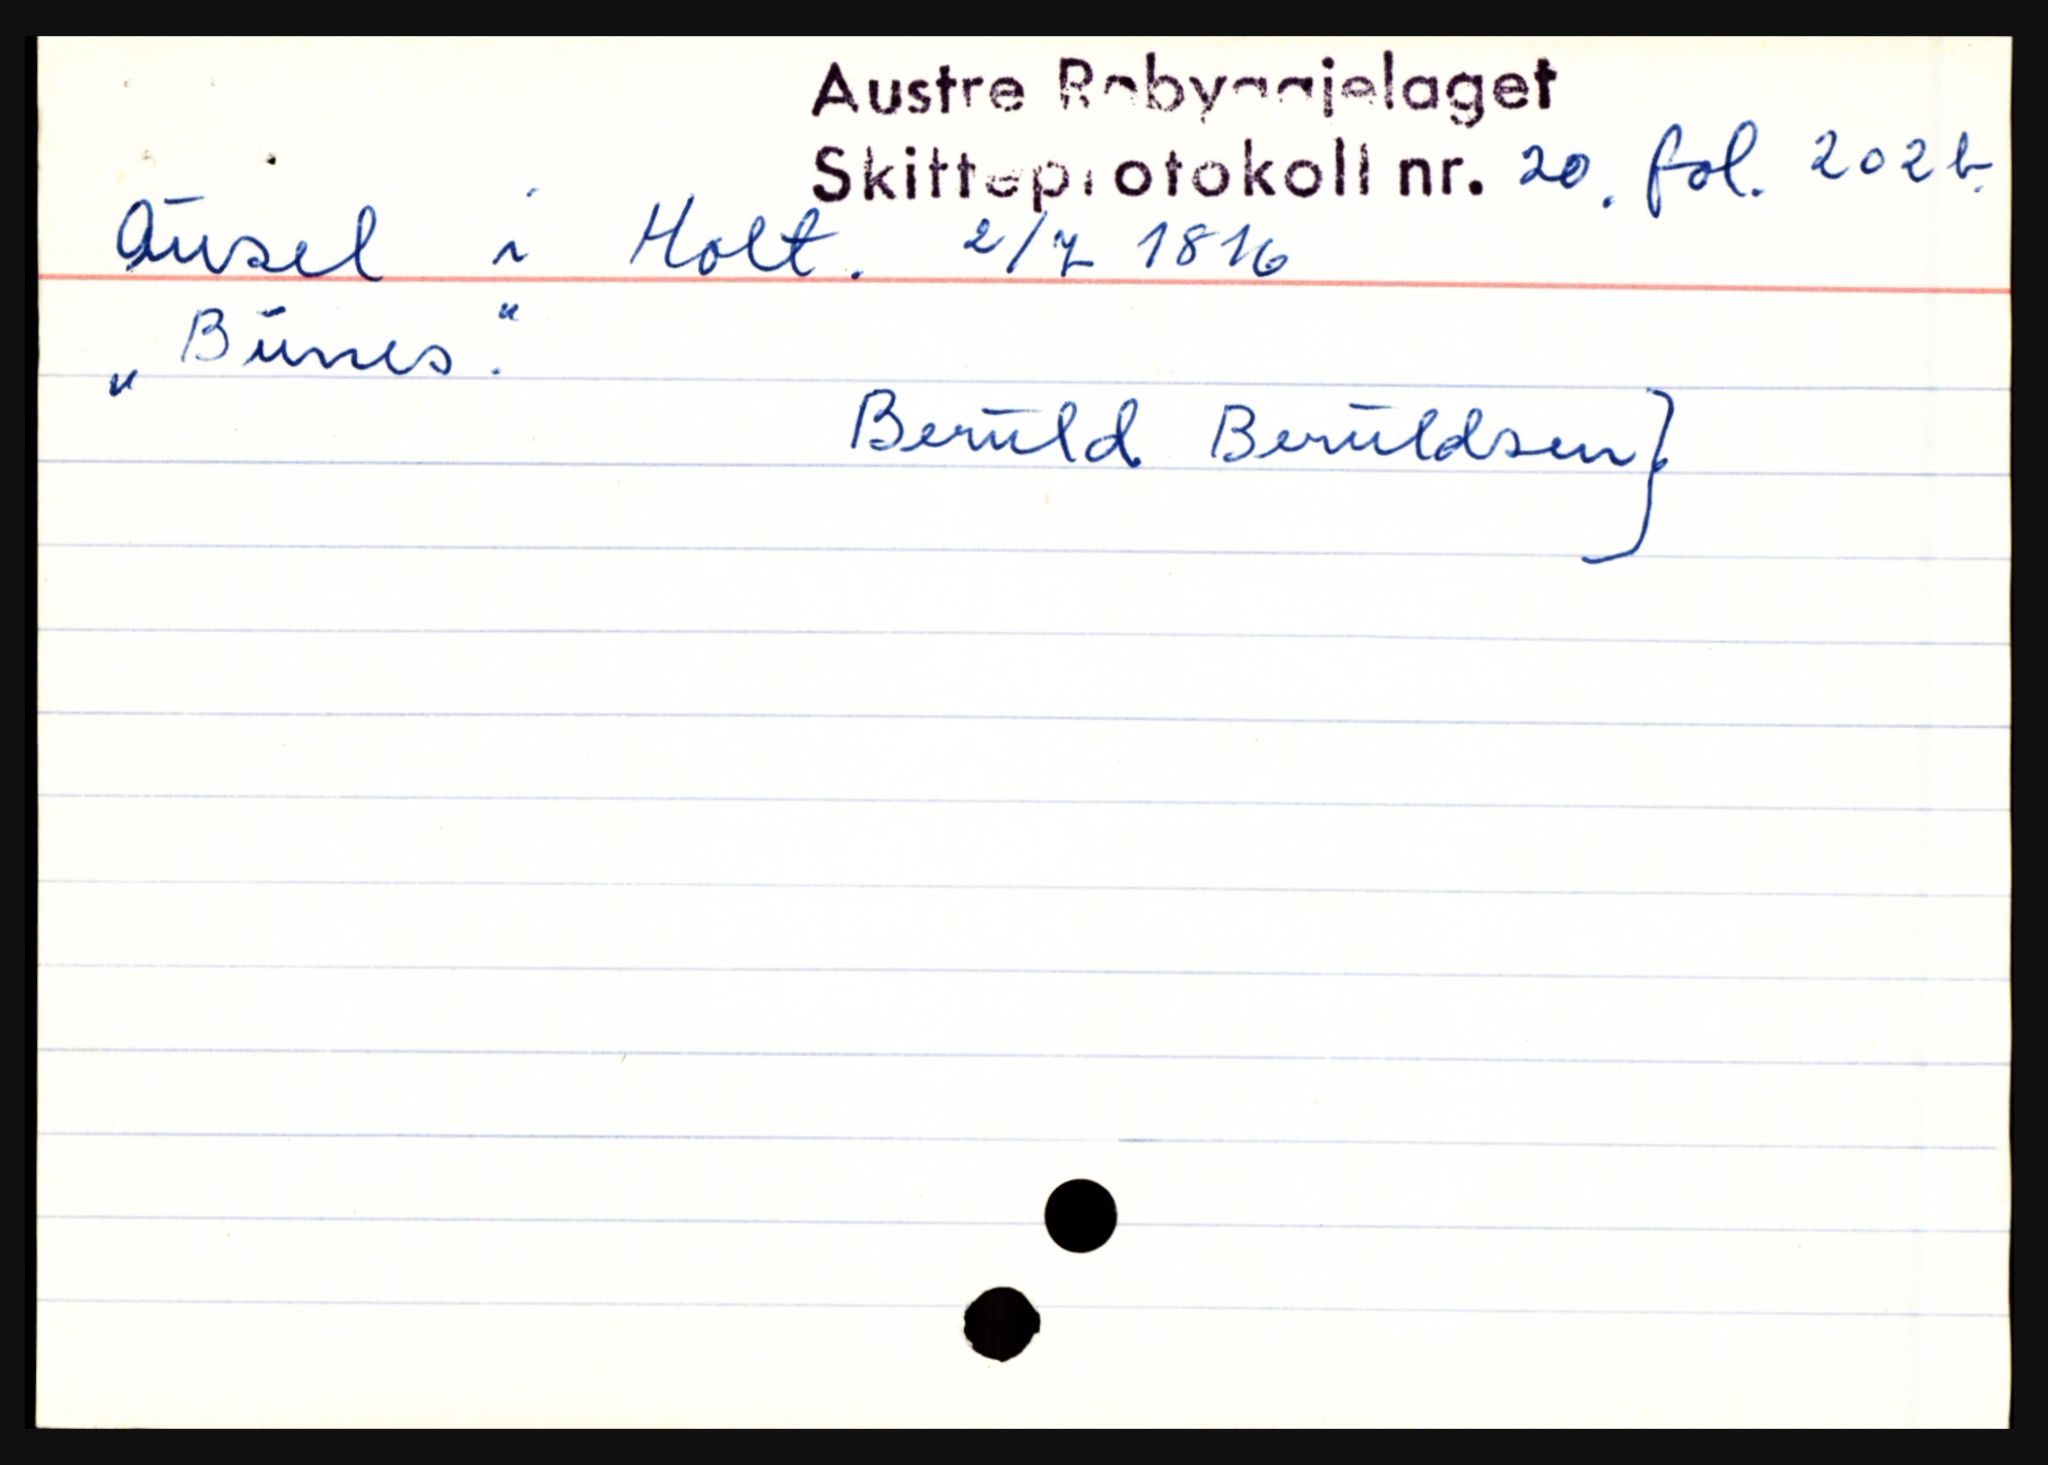 Austre Rabyggjelaget
Skifteprotokoll nr. 20. fol. 202b.
Ausel i Holt. 2/7 1816
„Bunes."
Beruld Beruldsen}